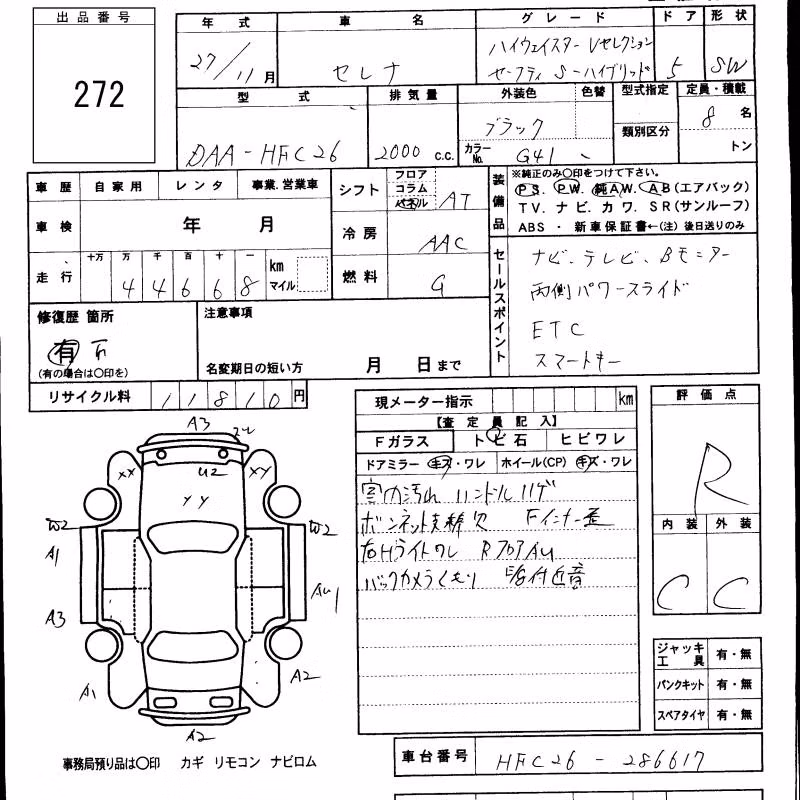 出品番号
272
年式
27/11月
車名
セレナ
グレード
ハイウェイスター Vセレクション
セーフティ S-ハイブリッド
ドア
5
形状
SW
型式
DAA-HFC26
排気量
2000 c.c.
外装色
ブラック
色替
カラーNo.
G41
型式指定
類別区分
定員・積載
8名
トン
車歴
自家用
レンタ
事業.営業車
車検
年 月
走行
十万 万 千 百 十 一
44668
km
マイル
シフト
フロア
コラム
パネル
AT
冷房
AAC
燃料
G
装備品
※純正のみ〇印をつけて下さい。
PS. PW. 純AW. AB(エアバック)
TV. ナビ. カワ. SR(サンルーフ)
ABS ・ 新車保証書←(注) 後日送りのみ
セールスポイント
ナビ、テレビ、Bモニター
両側パワースライド
ETC
スマートキー
修復歴 箇所
有 否
(有の場合は〇印を)
注意事項
名変期日の短い方
月 日まで
リサイクル料
11810円
現メーター指示
km
【査定員記入】
Fガラス
トビ石
ヒビワレ
ドアミラー キズ・ワレ
ホイール(CP) キズ・ワレ
室内汚れ ハンドルハゲ
ボンネット支棒欠 Fインナー歪
右Hライトワレ RフロアAU
バックカメラくもり
評価点
R
内装
外装
C
C
A3
XX
U2
XY
YY
W2
W2
A1
A3
AU1
A1
A2
A2
ジャッキ工具 有・無
パンクキット 有・無
スペアタイヤ 有・無
事務局預り品は〇印 カギ リモコン ナビロム
車台番号
HFC26-286617